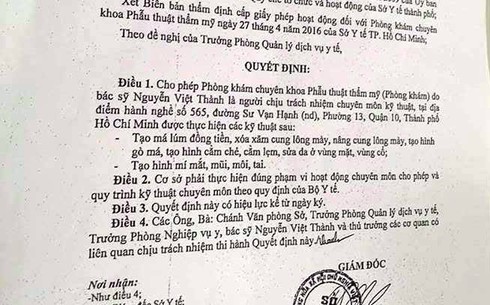 chế tổ chức và hoạt động của Sở Y tế thành phố;
Xét Biên bản thẩm định cấp giấy phép hoạt động đối với Phòng khám chuyên
khoa Phẫu thuật thẩm mỹ ngày 27 tháng 4 năm 2016 của Sở Y tế TP. Hồ Chí Minh;
Theo đề nghị của Trưởng Phòng Quản lý dịch vụ y tế,
QUYẾT ĐỊNH:
Điều 1. Cho phép Phòng khám chuyên khoa Phẫu thuật thẩm mỹ (Phòng khám) do
bác sỹ Nguyễn Việt Thành là người chịu trách nhiệm chuyên môn kỹ thuật, tại địa
điểm hành nghề số 565, đường Sư Vạn Hạnh (nd), Phường 13, Quận 10, Thành phố
Hồ Chí Minh được thực hiện các kỹ thuật sau:
- Tạo má lúm đồng tiền, xóa xăm cung lông mày, nâng cung lông mày, tạo hình
gò má, tạo hình cằm chẻ, cằm lẹm, sửa da ở vùng mặt, vùng cổ;
- Tạo hình mí mắt, mũi, môi, tai.
Điều 2. Cơ sở phải thực hiện đúng phạm vi hoạt động chuyên môn cho phép và
quy trình kỹ thuật chuyên môn theo quy định của Bộ Y tế.
Điều 3. Quyết định này có hiệu lực kể từ ngày ký.
Điều 4. Các Ông, Bà: Chánh Văn phòng Sở, Trưởng Phòng Quản lý dịch vụ y tế,
Trưởng Phòng Nghiệp vụ y, bác sỹ Nguyễn Việt Thành và thủ trưởng các cơ quan có
liên quan chịu trách nhiệm thi hành Quyết định này
GIÁM ĐỐC
Nơi nhận:
-Như điều 4;
SỞ